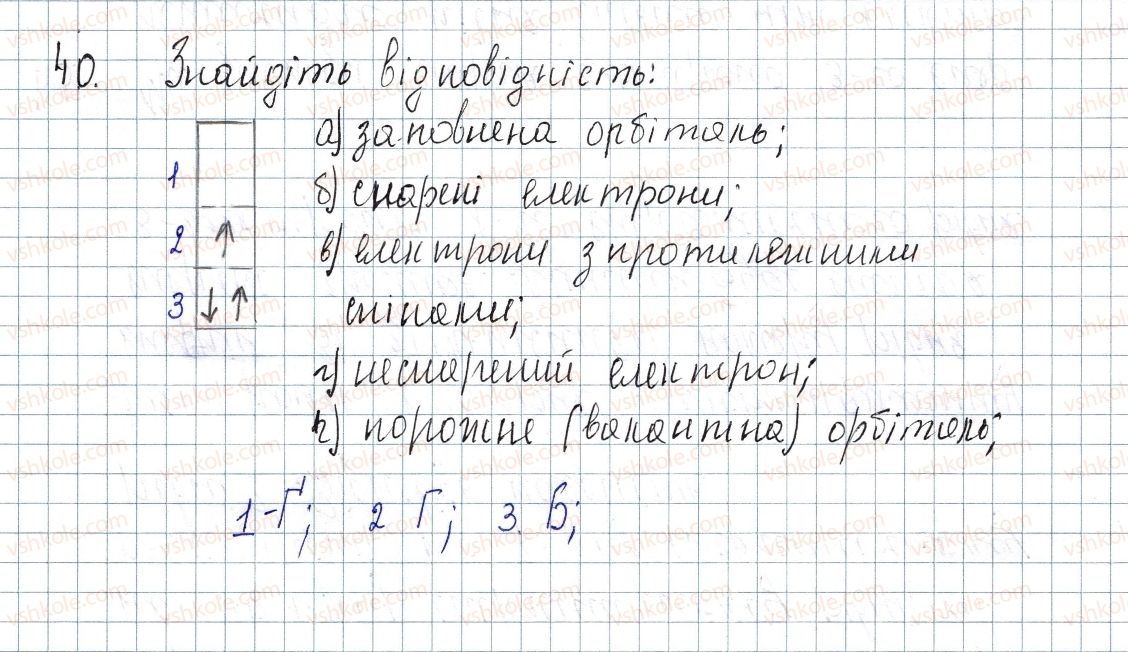 40. Знайдіть відповідність:
а) заповнена орбіталь;
1
б) спарені електрони;
2 ↑
в) електрони з протилежними
3 ↓↑
спінами;
г) несперений електрон;
ґ) порожнє (вакантна) орбіталь;
1-Ґ; 2 Г; 3. Б;